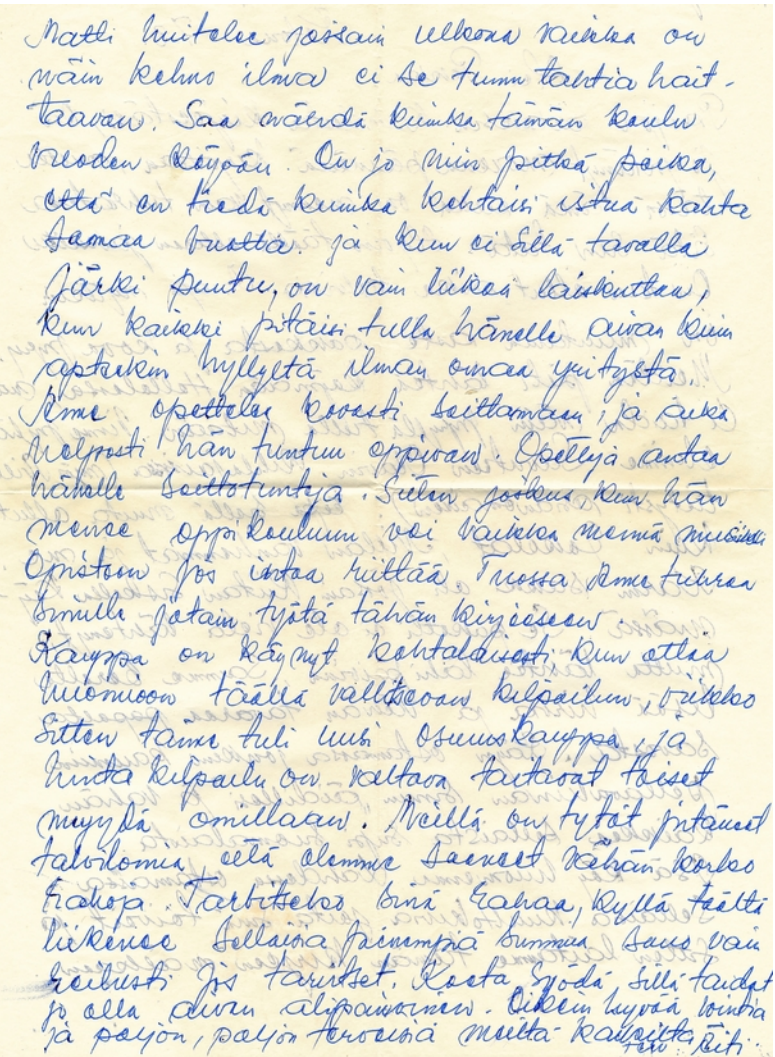 Matti huitelee jossain ulkona vaikka on
näin kehno ilma ei se tunnu tahtia hait-
taavan. Saa nähdä kuinka tämän koulu
vuoden käyvän. On jo niin pitkä poika,
että en tiedä kuinka kehtaisi istua kahta
samaa vuotta. ja kun ei sillä tavalla
järki puutu, on vain liikaa laiskuttaa,
kun kaikki pitäisi tulla hänelle aivan kuin
apteekin hyllyltä ilman omaa yritystä.
Anne opettelee kovasti soittamaan, ja aika
helposti hän tuntuu oppivan. Opettaja antaa
hänelle soittotunteja. Sitten joskus, kun hän
menee oppikouluun voi vaikka mennä musiikki
Opistoon jos intoa riittää Tuossa Anne tuhraa
sinulle jotain työtä tähän kirjeeseen.
Kauppa on käynyt kohtalaisesti kun ottaa
huomioon täällä vallitsevan kilpailun, viikko
Sitten tänne tuli uusi osuuskauppa, ja
hinta kilpailu on valtava taitavat toiset
myydä omillaan. Meillä on tytöt pitäneet
talvilomia, että olemme saaneet vähän korko
rahoja. Tarvitsetko sinä rahaa, kyllä täältä
liikenee sellaisia pienempiä summia sano vain
reilusti jos tarvitset. Koeta syödä, sillä taidat
jo olla aivan alipainoinen. Oikein hyvää vointia
ja paljon, paljon terveisiä meiltä kaikilta
Äiti.